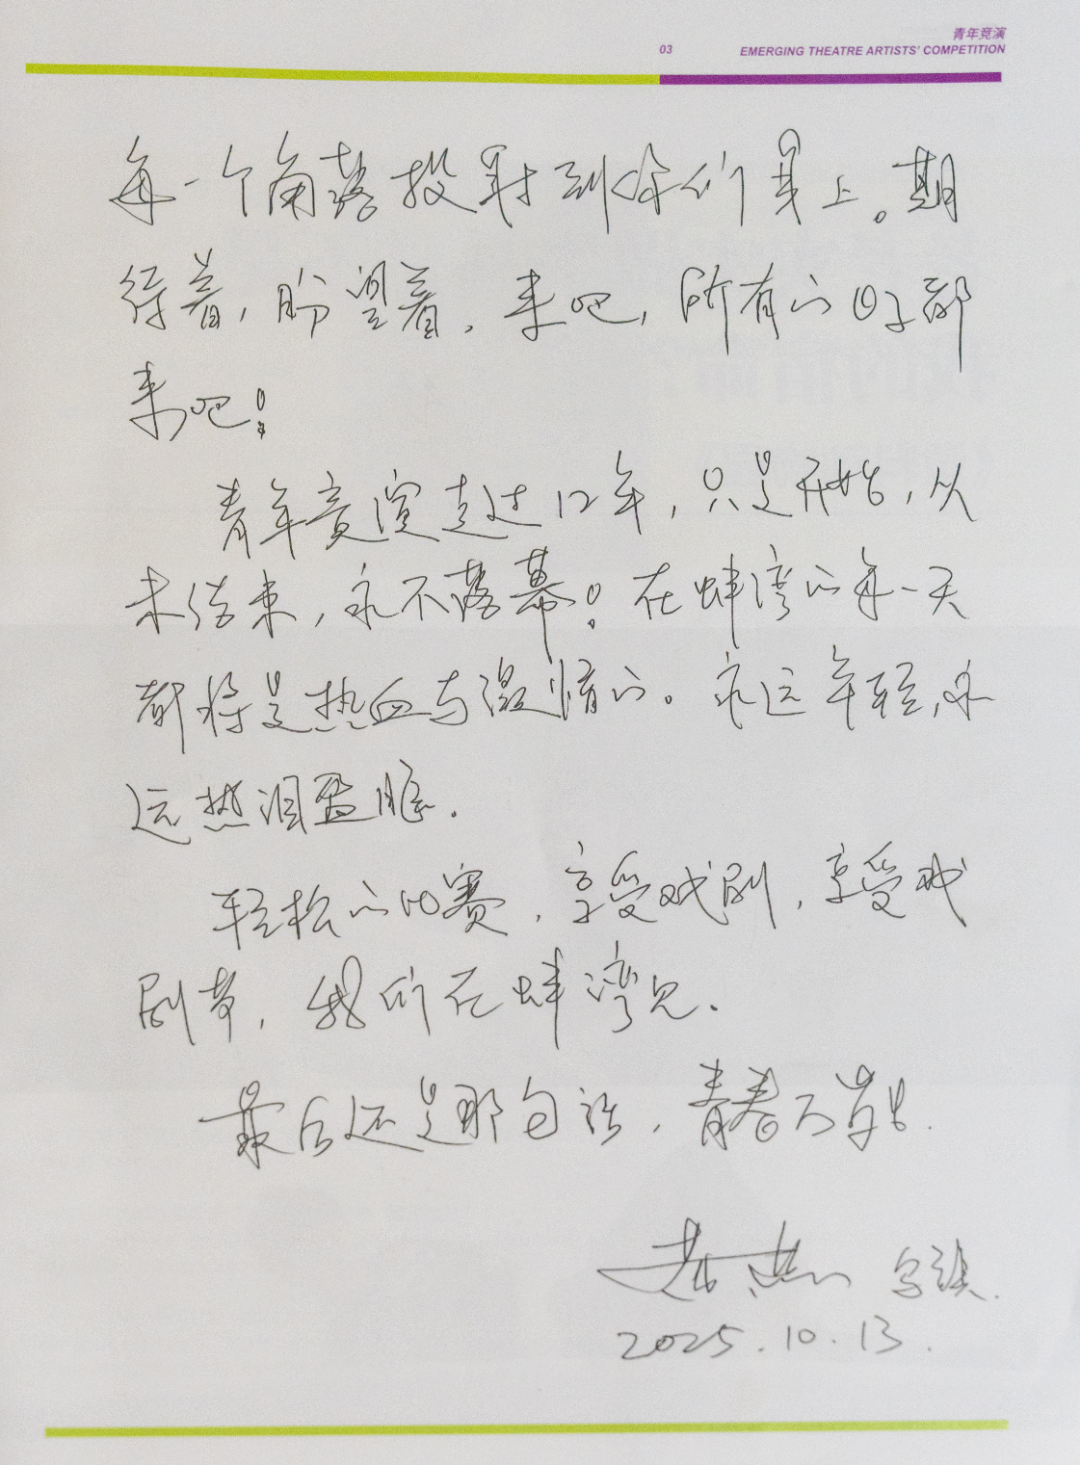 青年竞演
03 EMERGING THEATRE ARTISTS' COMPETITION
每一个角落投射到你们身上。期
待着,盼望着,来吧,所有的好都
来吧!
青年竞演走过12年,只是开始,从
未结束,永不落幕!在蚌湾的每一天
都将是热血与激情的。永远年轻,永
远热泪盈眶.
轻松的比赛,享受戏剧,享受戏
剧节,我们在蚌湾见.
最后还是那句话,青春万岁.
2025.10.13.